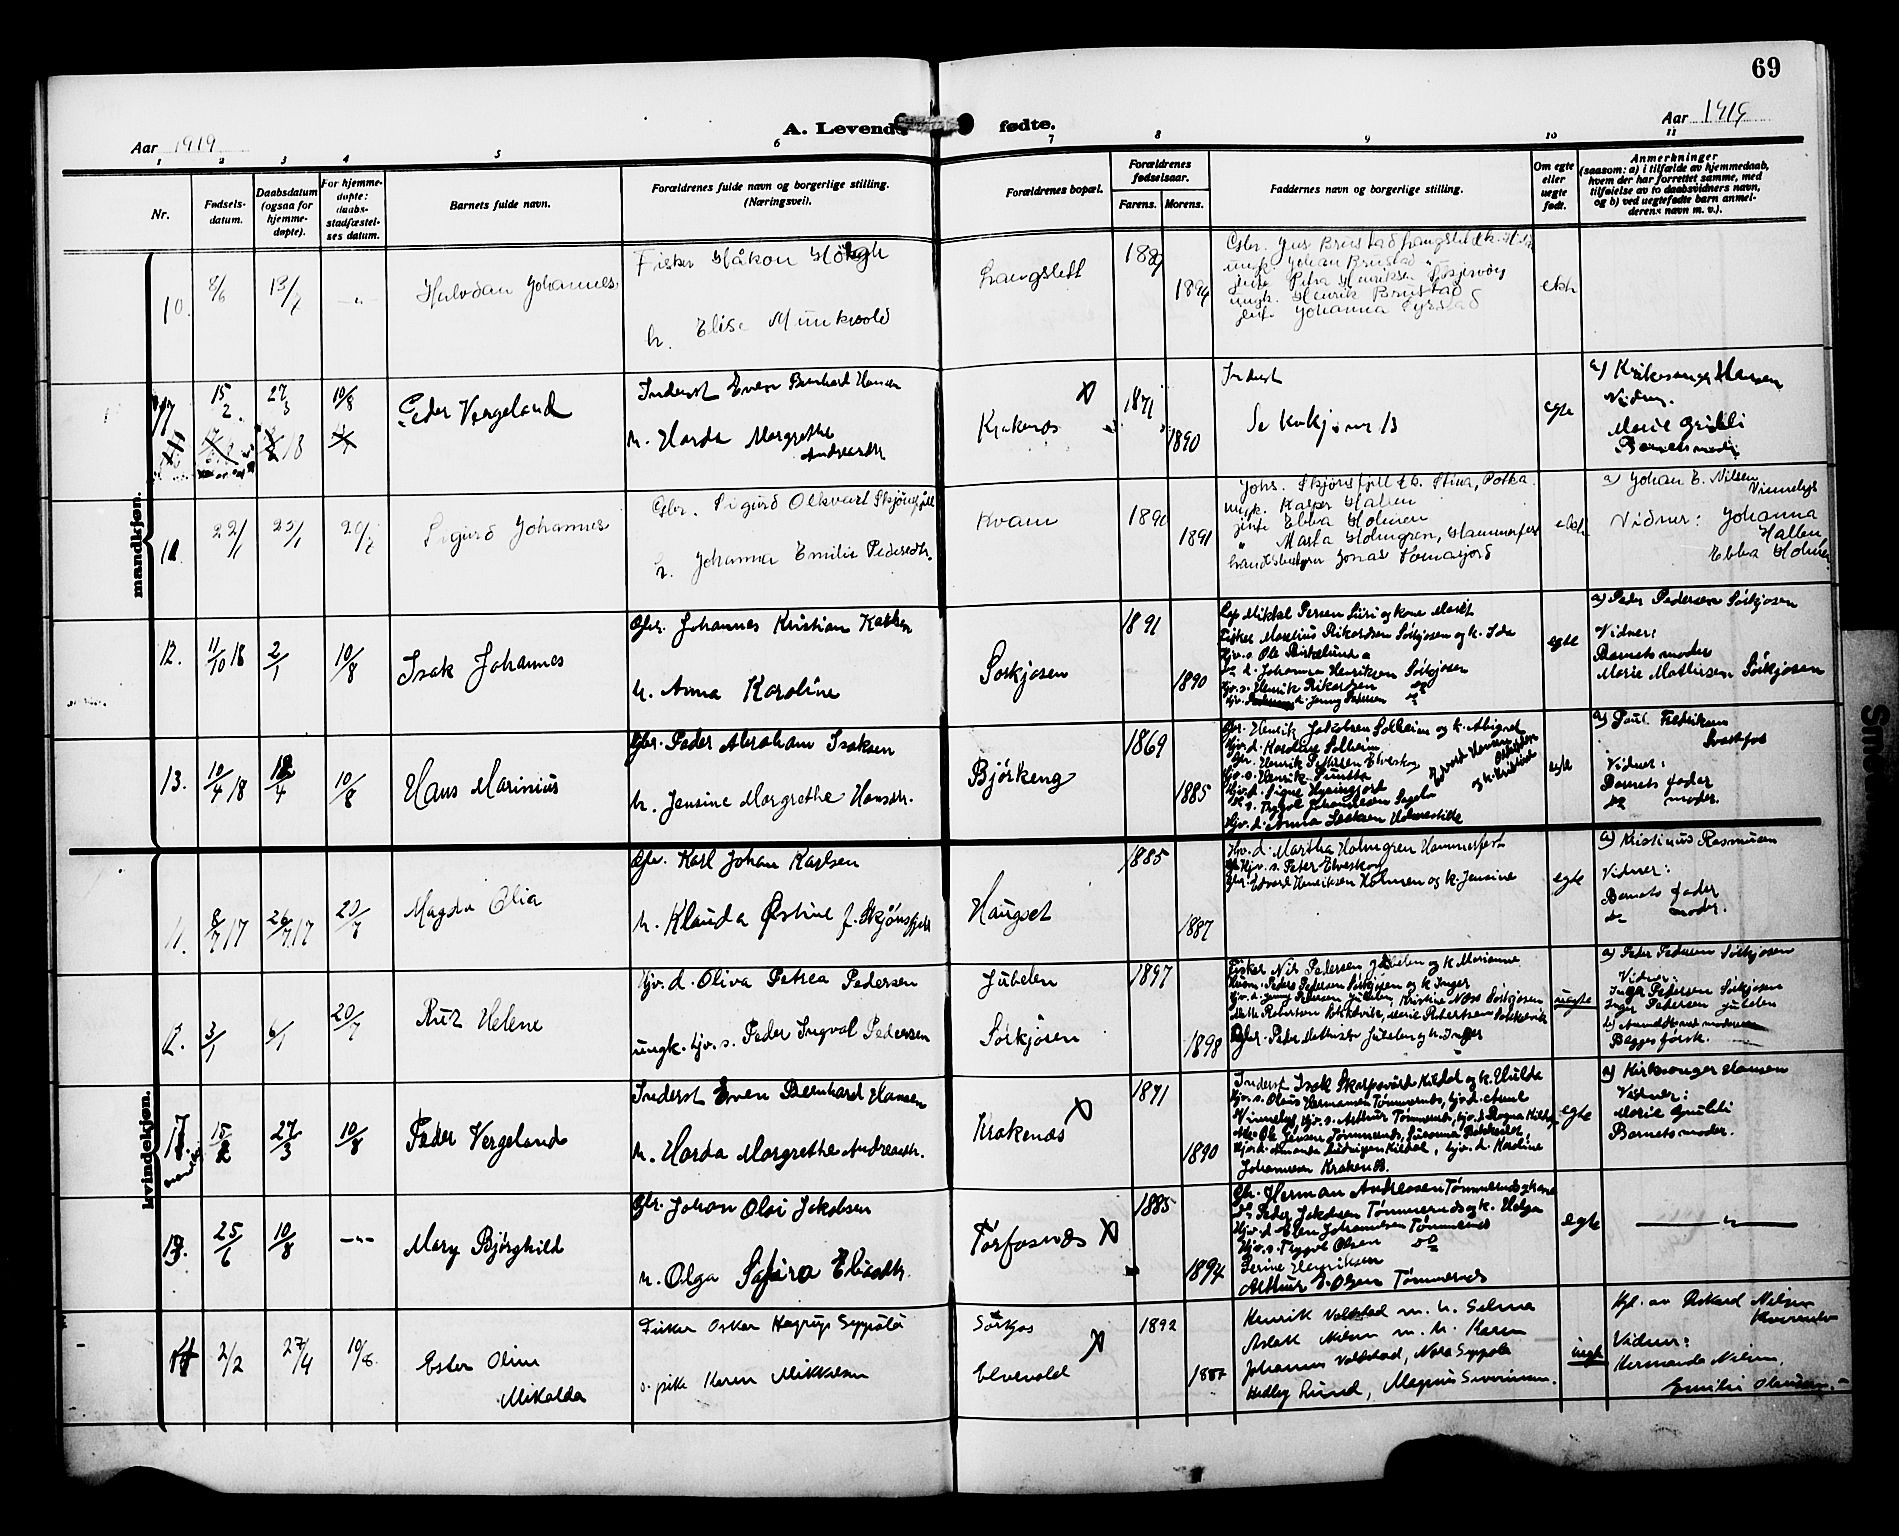 69
A. Levende fødte.
Aar 1919
Aar 1919
1 2 3 4 5 6 7 8 9 10 11
Nr.
Fødsels-
datum.
Daabsdatum
(ogsaa for
hjemme-
døpte).
For hjemme-
døpte:
daabs-
stadfæstel-
ses datum.
Barnets fulde navn.
Forældrenes fulde navn og borgerlige stilling.
(Næringsvei).
Forældrenes bopæl.
Forældrenes
fødselsaar.
Farens. Morens.
Faddernes navn og borgerlige stilling.
Om egte
eller
uegte
født.
Anmerkninger
(saasom: a) i tilfælde av hjemmedaab,
hvem der har forrettet samme, med
tilføielse av to daabsvidners navn,
og b) ved uegtefødte barn anmel-
derens navn m. v.).
mandkjøn.
10.
8/6
13/7
Halvdan Johannes
Fisker Håkon Høegh
h. Elise Munkvold
Langslett
1889
1894
ungk. Johan Brustad
jente Petra Henriksen
ungk. Henrik Brustad
jente Johanna
ekte
15/2
27/3
10/8
Peder Vergeland
Inderst Even Bernhard Hansen
h. Harda Margrethe
Andreasdtr
Krakenes
1871
1890
Inderst
Se kvkjønn 13
egte
a) Kirkesanger Hansen
Vidner.
Marie Grubli
Barnets moder
11.
22/1
25/1
20/7
Sigurd Johannes
Gbr. Sigurd Olkvart Skjønsfjell
h. Johanna Emilie Pedersdtr.
Kvam
1890
1891
Johs. Skjønsfjell
ungk. Kasper Hallen
jente Ebba Holmen
" Marta Holmgren, Hammerfest
ekte
a) Johan E. Nilsen
Vinnelys
Vidner: Johanna
Hallen
Ebba Holmen
12.
11/10 18
2/1
10/8
Isak Johannes
Gbr. Johannes Kristian
h. Anna Karoline
Sørkjosen
1891
1890
Lap Mikkal Persen Siiri og kone Marit
Fisker Marelius Rikardsen Sørkjosen og k. Ida
tjv. s. Ole Birkelund
d. Johanna Henriksen Sørkjosen
tjv. s. Henrik Rikardsen do
d. Jenny Pedersen do
egte
a) Peder Pedersen Sørkjosen
Vidner:
Barnets moder
Marie Mathisen Sørkjosen
13.
10/4 18
18/4
10/8
Hans Marinius
Gbr. Peder Abraham Isaksen
h. Jensine Margrethe Hansdtr.
Bjørkeng
1869
1885
Gbr. Henrik Jakobsen Solheim og k. Abigael
tjv. d. Karoline Solheim
Gbr. Henrik Pettersen Elveskog
tjv. s. Henrik
tjv. d. Signe
s. Trygve Johannesen
tjv. d. Anna Isaksen
Edvard Hansen
og k. Kristine
egte
a) Paul Fredriksen
Vidner:
Barnets fader
do moder.
kvindekjøn.
11.
8/7 17
26/7 17
20/7
Magda Olia
Gbr. Karl Johan Karlsen
h. Klauda Østine f. Skjønsfjell
Haugset
1885
1887
tjv. d. Martha Holmgren Hammerfest
tjv. s. Peter Elveskog
Gbr. Edvard Henriksen Holmen og k. Jensine
egte
a) Kristinus Rasmussen
Vidner:
Barnets fader
do moder.
12.
3/1
6/1
20/7
Rut Helene
tjv. d. Oliva Petrea Pedersen
ungk. tjv. s. Peder Ingvol Pedersen
Jubelen
Sørkjosen
1897
1898
Fisker Nils Pedersen Jubelen og k. Marianne
Husm. Peder Pedersen Sørkjosen og k. Inger
tjv. d. Jenny Pedersen Jubelen, Kristine Næss Sørkjosen
Gbr. Peder Jubelen og k. Inger
uegte
a) Peder Pedersen Sørkjosen
Vidner:
Inger Pedersen Sørkjosen
Inger Pedersen Jubelen
Begges første.
15/2
27/3
10/8
Peder Vergeland
Inderst Even Bernhard Hansen
h. Harda Margrethe Andreasdtr.
Krakenæs
1871
1890
Inderst Isak Skarpsvärd Kildal og k. Hulda
tjv. s. Olaus Hermansen Tømmernes, tjv. d. Anne
Vinnelys, tjv. s. Arthur Tømmernes, tjv. d. Ragna Kildal
Ole Jensen Tømmernes, Susanna
tjv. d. Amanda Ludvigsen Kildal, tjv. d. Karoline
Johannesen Krakenes.
egte
a) Kirkesanger Hansen
Vidner:
Marie Grubli
Barnets moder.
13.
25/6
10/8
Mary Bjørghild
Gbr. Johan Olai Jakobsen
h. Olga Safira Eliasdtr.
Torfosnæs
1885
1894
Gbr. Herman Andreasen Tømmernes og kone
do Peder Jakobsen Tømmernes og k. Helga
tjv. d. Elen Johannesen Tømmernes
tjv. s. Trygve Olsen do
Perine Henriksen
Arthur D. Olsen Tømmernes
egte
14
2/2
27/4
10/8.
Ester Oline
Mikalda
Fisker Oskar Hagrup Seppola
pike Karen Mikkelsen
Sørkjos
Elvevold
1892
1887
Henrik Voldstad m. h. Selma
Aslak Nilsen m. h. Karen
Johannes Voldstad, Nora Seppola
Hedley Lund, Magnus Severinsen.
uegte
Hj. av Rikard Nilsen
Vidner:
Hermanda Nilsen,
Emilie Olaussen.